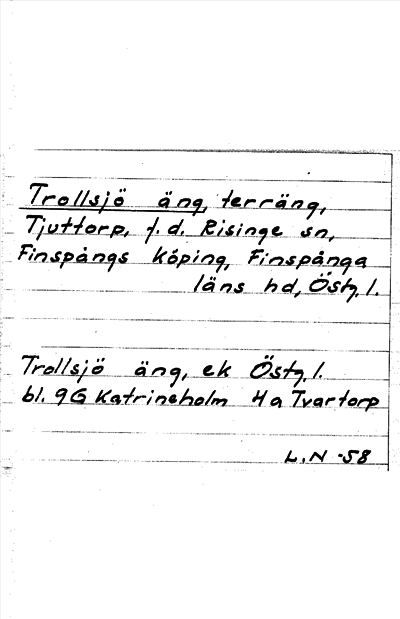 Trollsjö äng, terräng,
Tjuttorp, f. d. Risinge sn,
Finspångs köping, Finspånga
läns hd, Östg. l.
Trollsjö äng, ek Östg. l.
bl. 9G Katrineholm 4a Tvartorp
L.N -58